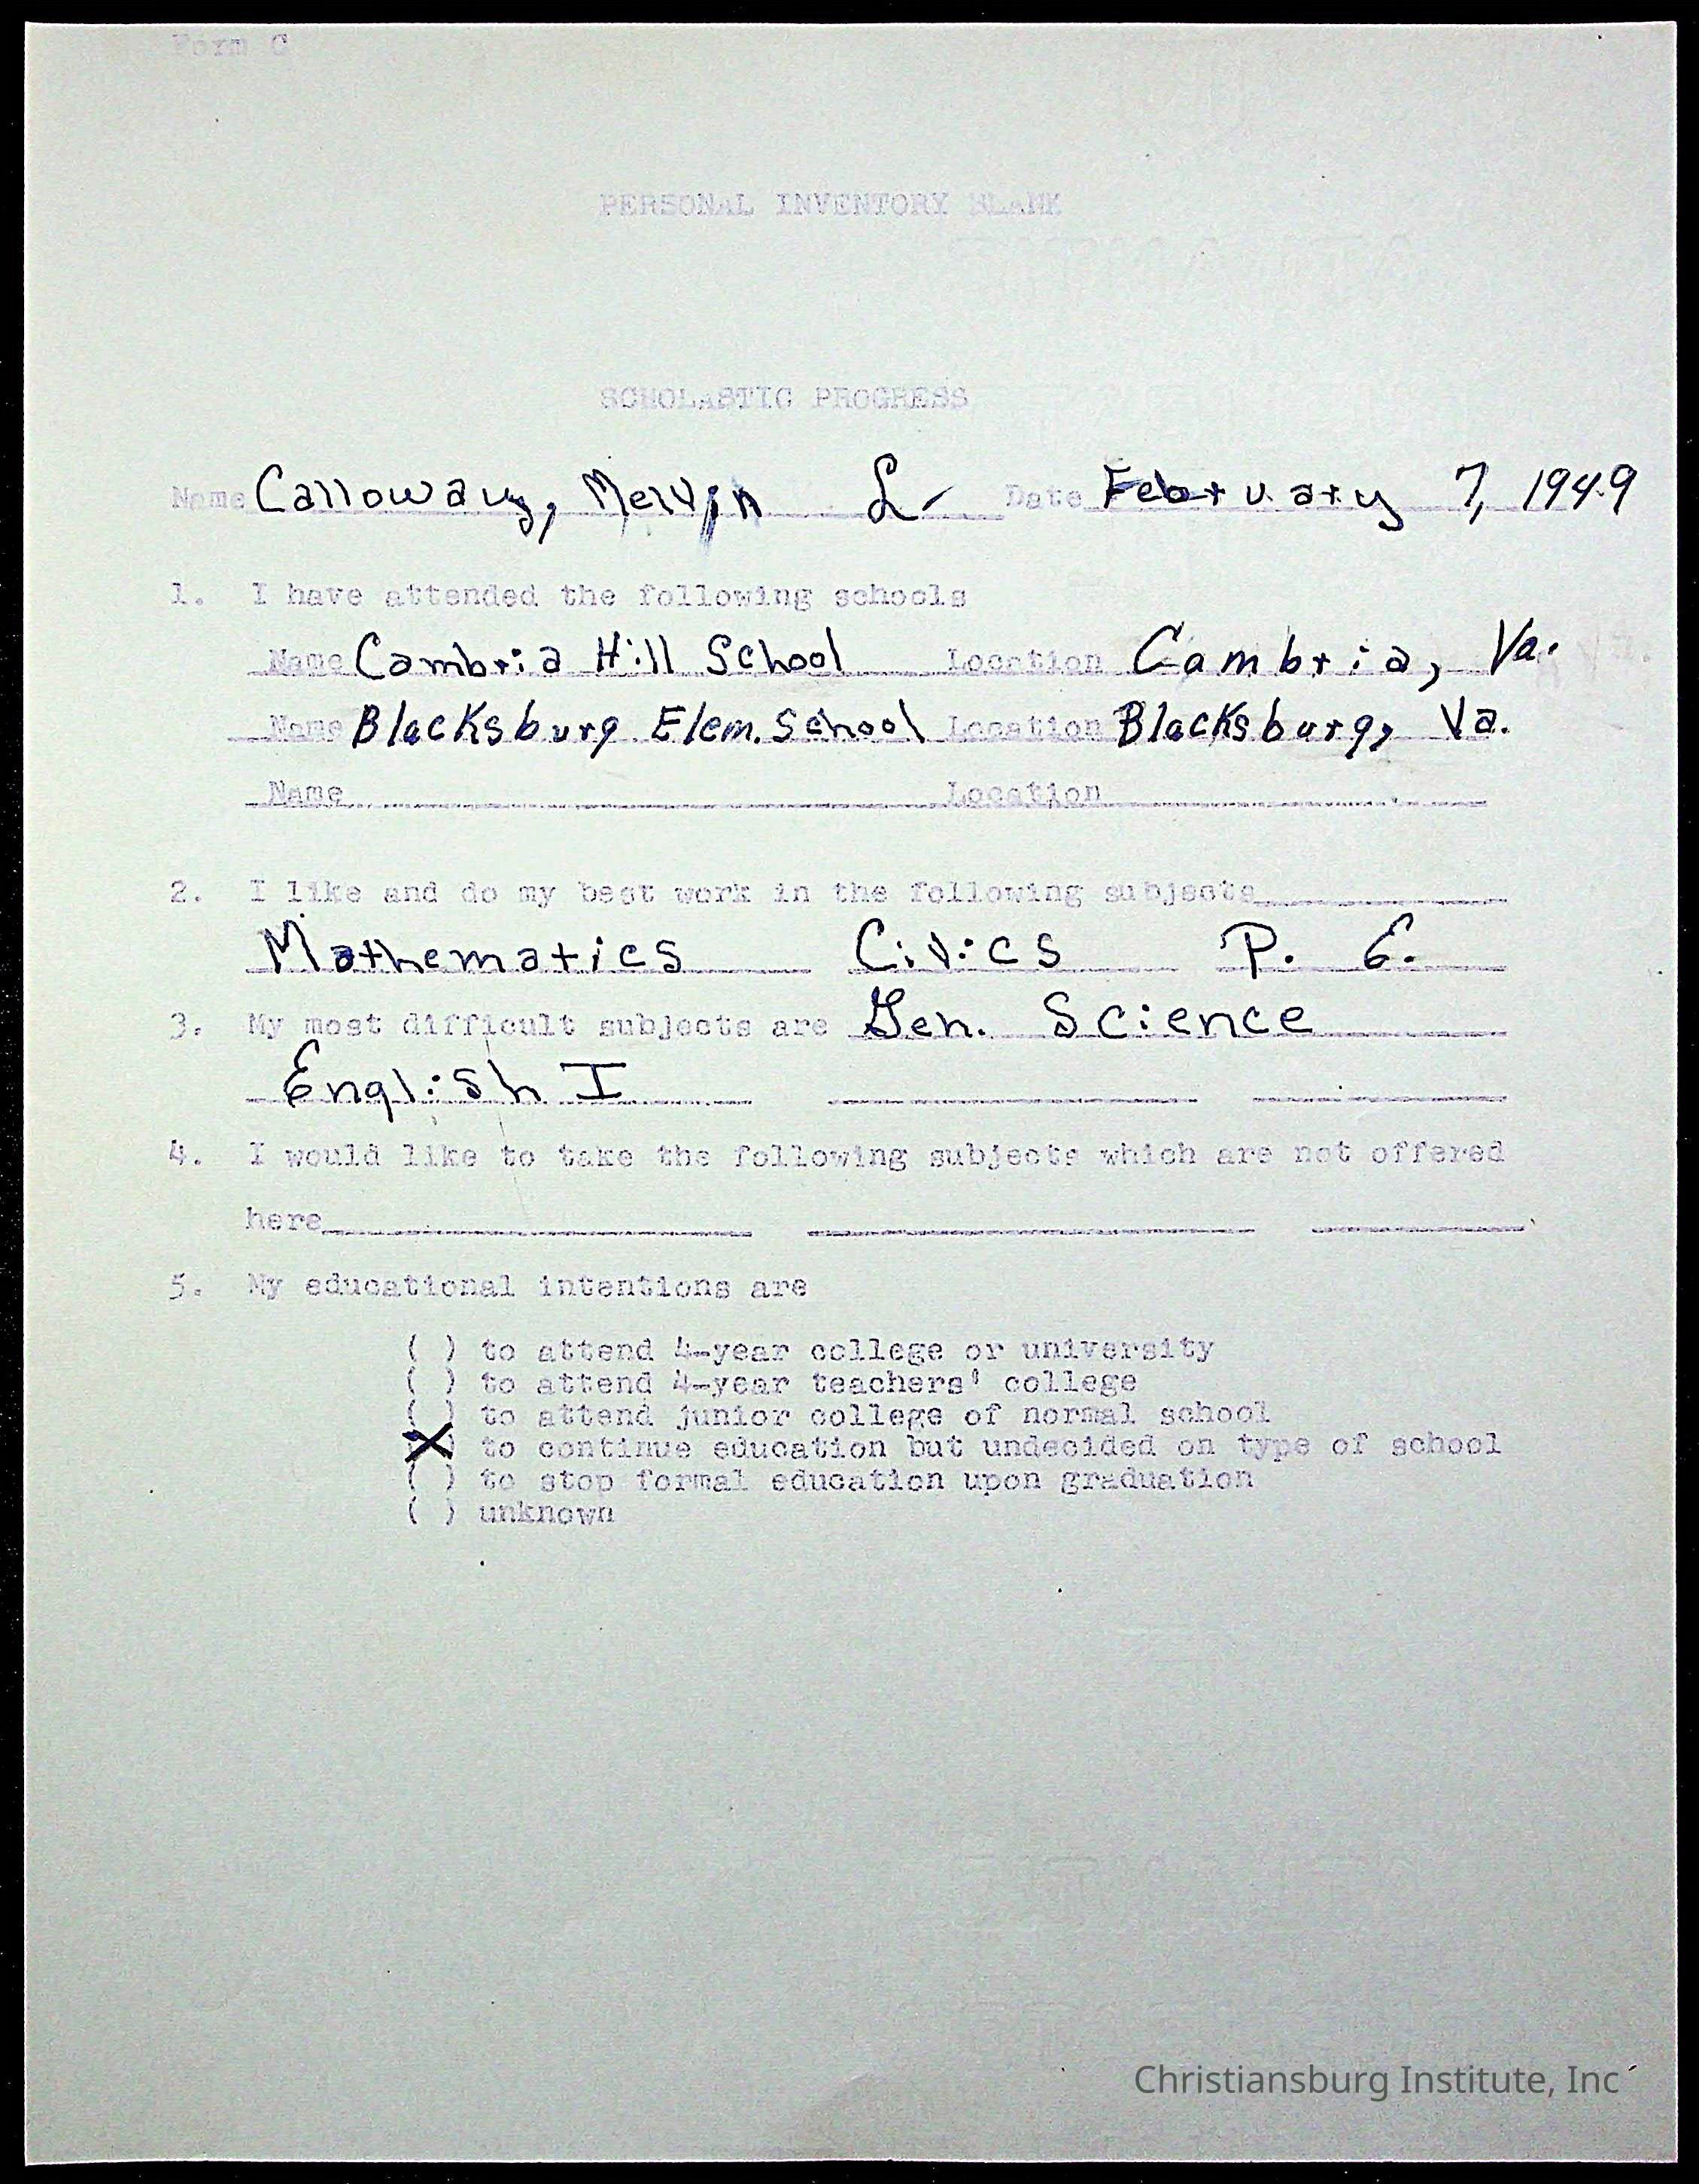 Form C
PERSONAL INVENTORY BLANK
SCHOLASTIC PROGRESS
Name Calloway, Melvin L. Date February 7, 1949
1. I have attended the following schools
Name Cambria Hill School Location Cambria, Va.
Name Blacksburg Elem. School Location Blacksburg, Va.
Name Location
2. I like and do my best work in the following subjects
Mathematics Civics P. E.
3. My most difficult subjects are Gen. Science
English I
4. I would like to take the following subjects which are not offered
here
5. My educational intentions are
( ) to attend 4-year college or university
( ) to attend 4-year teachers' college
( ) to attend junior college of normal school
(X) to continue education but undecided on type of school
( ) to stop formal education upon graduation
( ) unknown
Christiansburg Institute, Inc